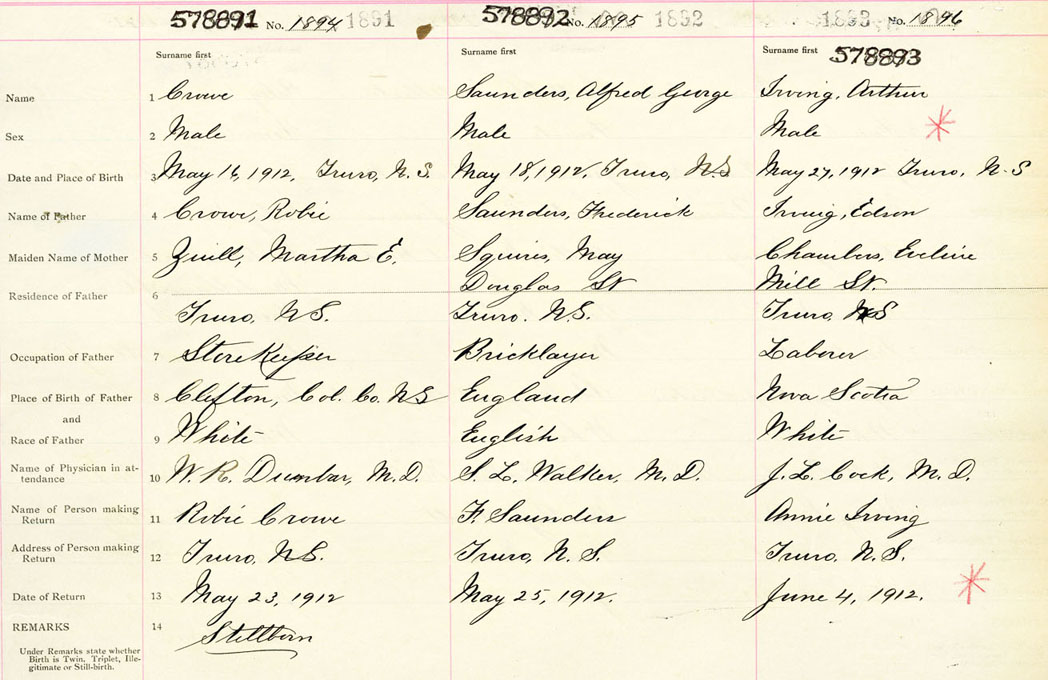 578891 No. 1894 1891 578892 No. 1895 1892 1893 No. 1896
Surname first Surname first Surname first 578893
Name 1 Crowe Saunders, Alfred George Irving, Arthur
Sex 2 Male Male Male
Date and Place of Birth 3 May 16, 1912, Truro, N.S. May 18, 1912, Truro, N.S May 27, 1912 Truro, N.S
Name of Father 4 Crowe, Robie Saunders, Frederick Irving, Edson
Maiden Name of Mother 5 Martha E. Squires, May Chambers, Eveline
Residence of Father 6 Douglas St Mill St.
Truro, N.S. Truro. N.S. Truro, N.S
Occupation of Father 7 StoreKeeper Bricklayer Laborer
Place of Birth of Father 8 Clifton, Col. Co. NS England Nova Scotia
and
Race of Father 9 White English White
Name of Physician in at- 10 W. R. Dunbar, M.D. S. L. Walker, M.D. J. L. Cock, M.D.
tendance
Name of Person making 11 Robie Crowe F. Saunders Annie Irving
Return
Address of Person making 12 Truro, N.S. Truro, N.S. Truro. N.S.
Return
Date of Return 13 May 23, 1912 May 25, 1912. June 4, 1912.
REMARKS 14 Stillborn
Under Remarks state whether
Birth is Twin, Triplet, Ille-
gitimate or Still-birth.